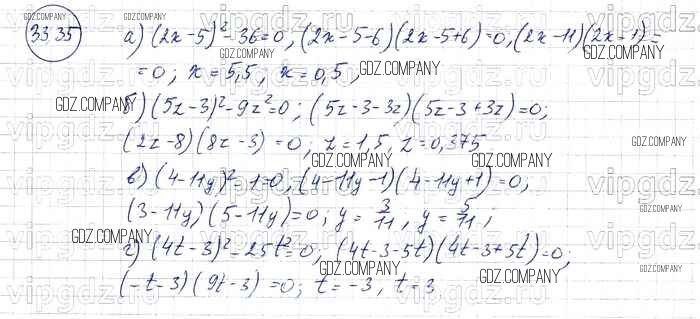 33.35
а) (2x-5)²-36=0, (2x-5-6)(2x-5+6)=0, (2x-11)(2x-1)=
=0; x=5,5, x=0,5,
б) (5z-3)²-9z²=0; (5z-3-3z)(5z-3+3z)=0;
(2z-8)(8z-3)=0; z=1,5, z=0,375
в) (4-11y)²-1=0, (4-11y-1)(4-11y+1)=0,
(3-11y)(5-11y)=0; y=3/11, y=5/11;
г) (4t-3)²-25t²=0, (4t-3-5t)(4t-3+5t)=0;
(-t-3)(9t-3)=0; t=-3, t=3
GDZ.COMPANY
GDZ.COMPANY
GDZ.COMPANY
GDZ.COMPANY
GDZ.COMPANY
GDZ.COMPANY
GDZ.COMPANY
GDZ.COMPANY
GDZ.COMPANY
GDZ.COMPANY
GDZ.COMPANY
GDZ.COMPANY
GDZ.COMPANY
GDZ.COMPANY
vipgdz
vipgdz
vipgdz
vipgdz